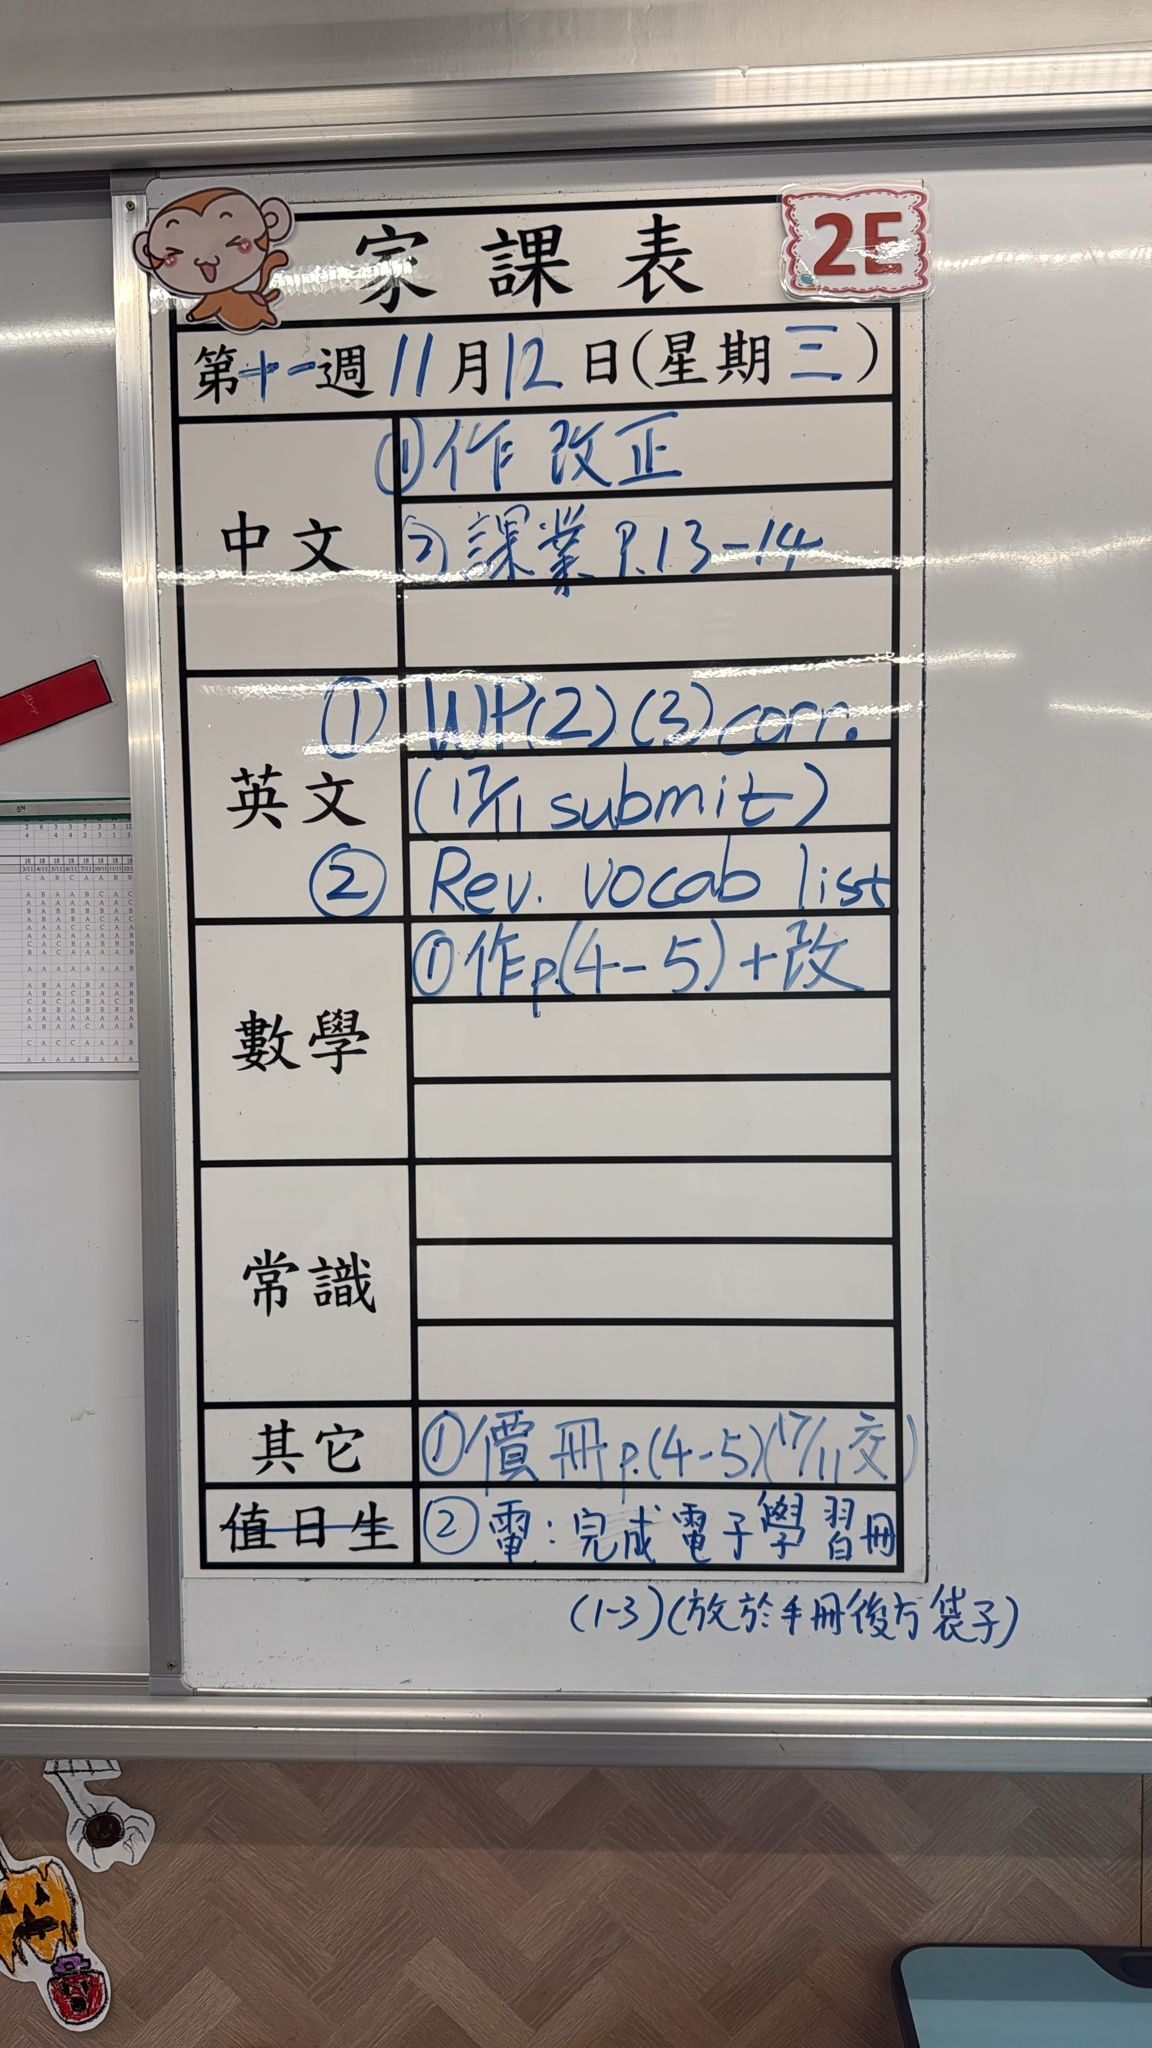 家課表
2E
第十一週 11月12日(星期三)
中文
①作 改正
②課業 P.13-14
英文
① WP(2)(3)corr.
(17/11 submit)
② Rev. vocab list
數學
①作p.(4-5)+改
常識
其它
①價冊p.(4-5)(17/11交)
值日生
②電:完成電子學習冊
(1-3)(放於手冊後方袋子)